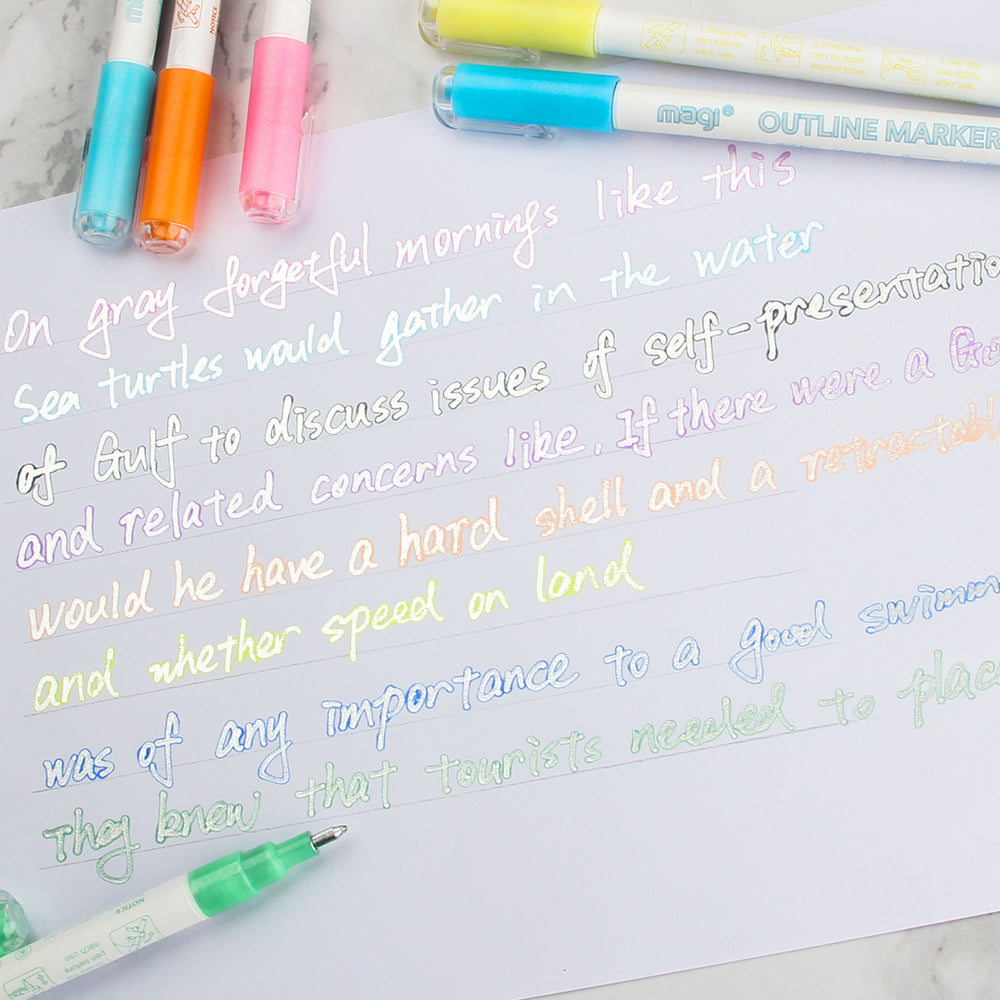 NOTICE
1. Shake the pen before each use.
2. Press the pen tip down several times
3. Cap the pen tightly after use
magi® OUTLINE MARKER
On gray forgetful mornings like this
Sea turtles would gather in the water
of Gulf to discuss issues of self-presentatio
and related concerns like. If there were a Go
would he have a hard shell and a retractabl
and whether speed on land
was of any importance to a good swimm
They knew that tourists needed to plac
NOTICE
pen before each use